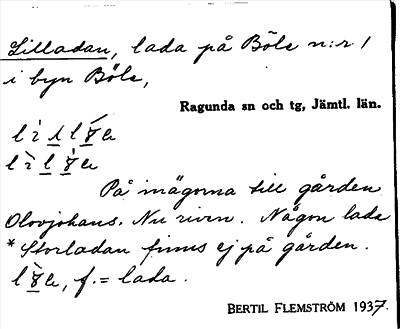 Lilladan, lada på Böle n:r 1
i byn Böle,
Ragunda sn och tg, Jämtl. län.
På inägorna till gården
Olovjohans. Nu riven. Någon lada
* Storladan finns ej på gården.
f. = lada.
BERTIL FLEMSTRÖM 1937.